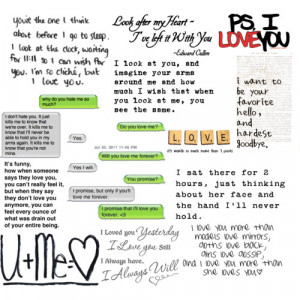 you're the one I think
about before I go to sleep.
I look at the clock, waiting
for 11:11 so I can wish for
you. I'm so cliché, but I
love you.
Look after my Heart -
I've left it With You
-Edward Cullen
PS. I
LOVE YOU
I look at you, and
imagine your arms
around me and how
much I wish that when
you look at me, you
see the same.
why do you hate me so
much?
I don't hate you. It just
kills me to know that
we're over. It kills me to
know that I'll never be
able to hold you in my
arms again. It kills me to
know that you're not
mine.
Do you love me?
Jul 20, 2011 11:45 PM
Yes
Will you love me forever?
Yes I will
You promise?
I promise, but only if you'll
love me forever
I promise that I'll love you
forever. <3
LOVE
I want to
be your
favorite
hello,
and
hardest
goodbye.
It's funny,
how when someone
says they love you,
you can't really feel it,
but when they say
they don't love you
anymore, you can
feel every ounce of
what was drain out
of your entire being.
I sat there for 2
hours, just thinking
about her face and
the hand I'll never
hold.
U+Me=
I Loved you Yesterday
I Love you Still
I Always have,
I Always Will
I love you more than
models love mirrors,
goths love black,
girls love gossip,
and I love you more than
she loves you